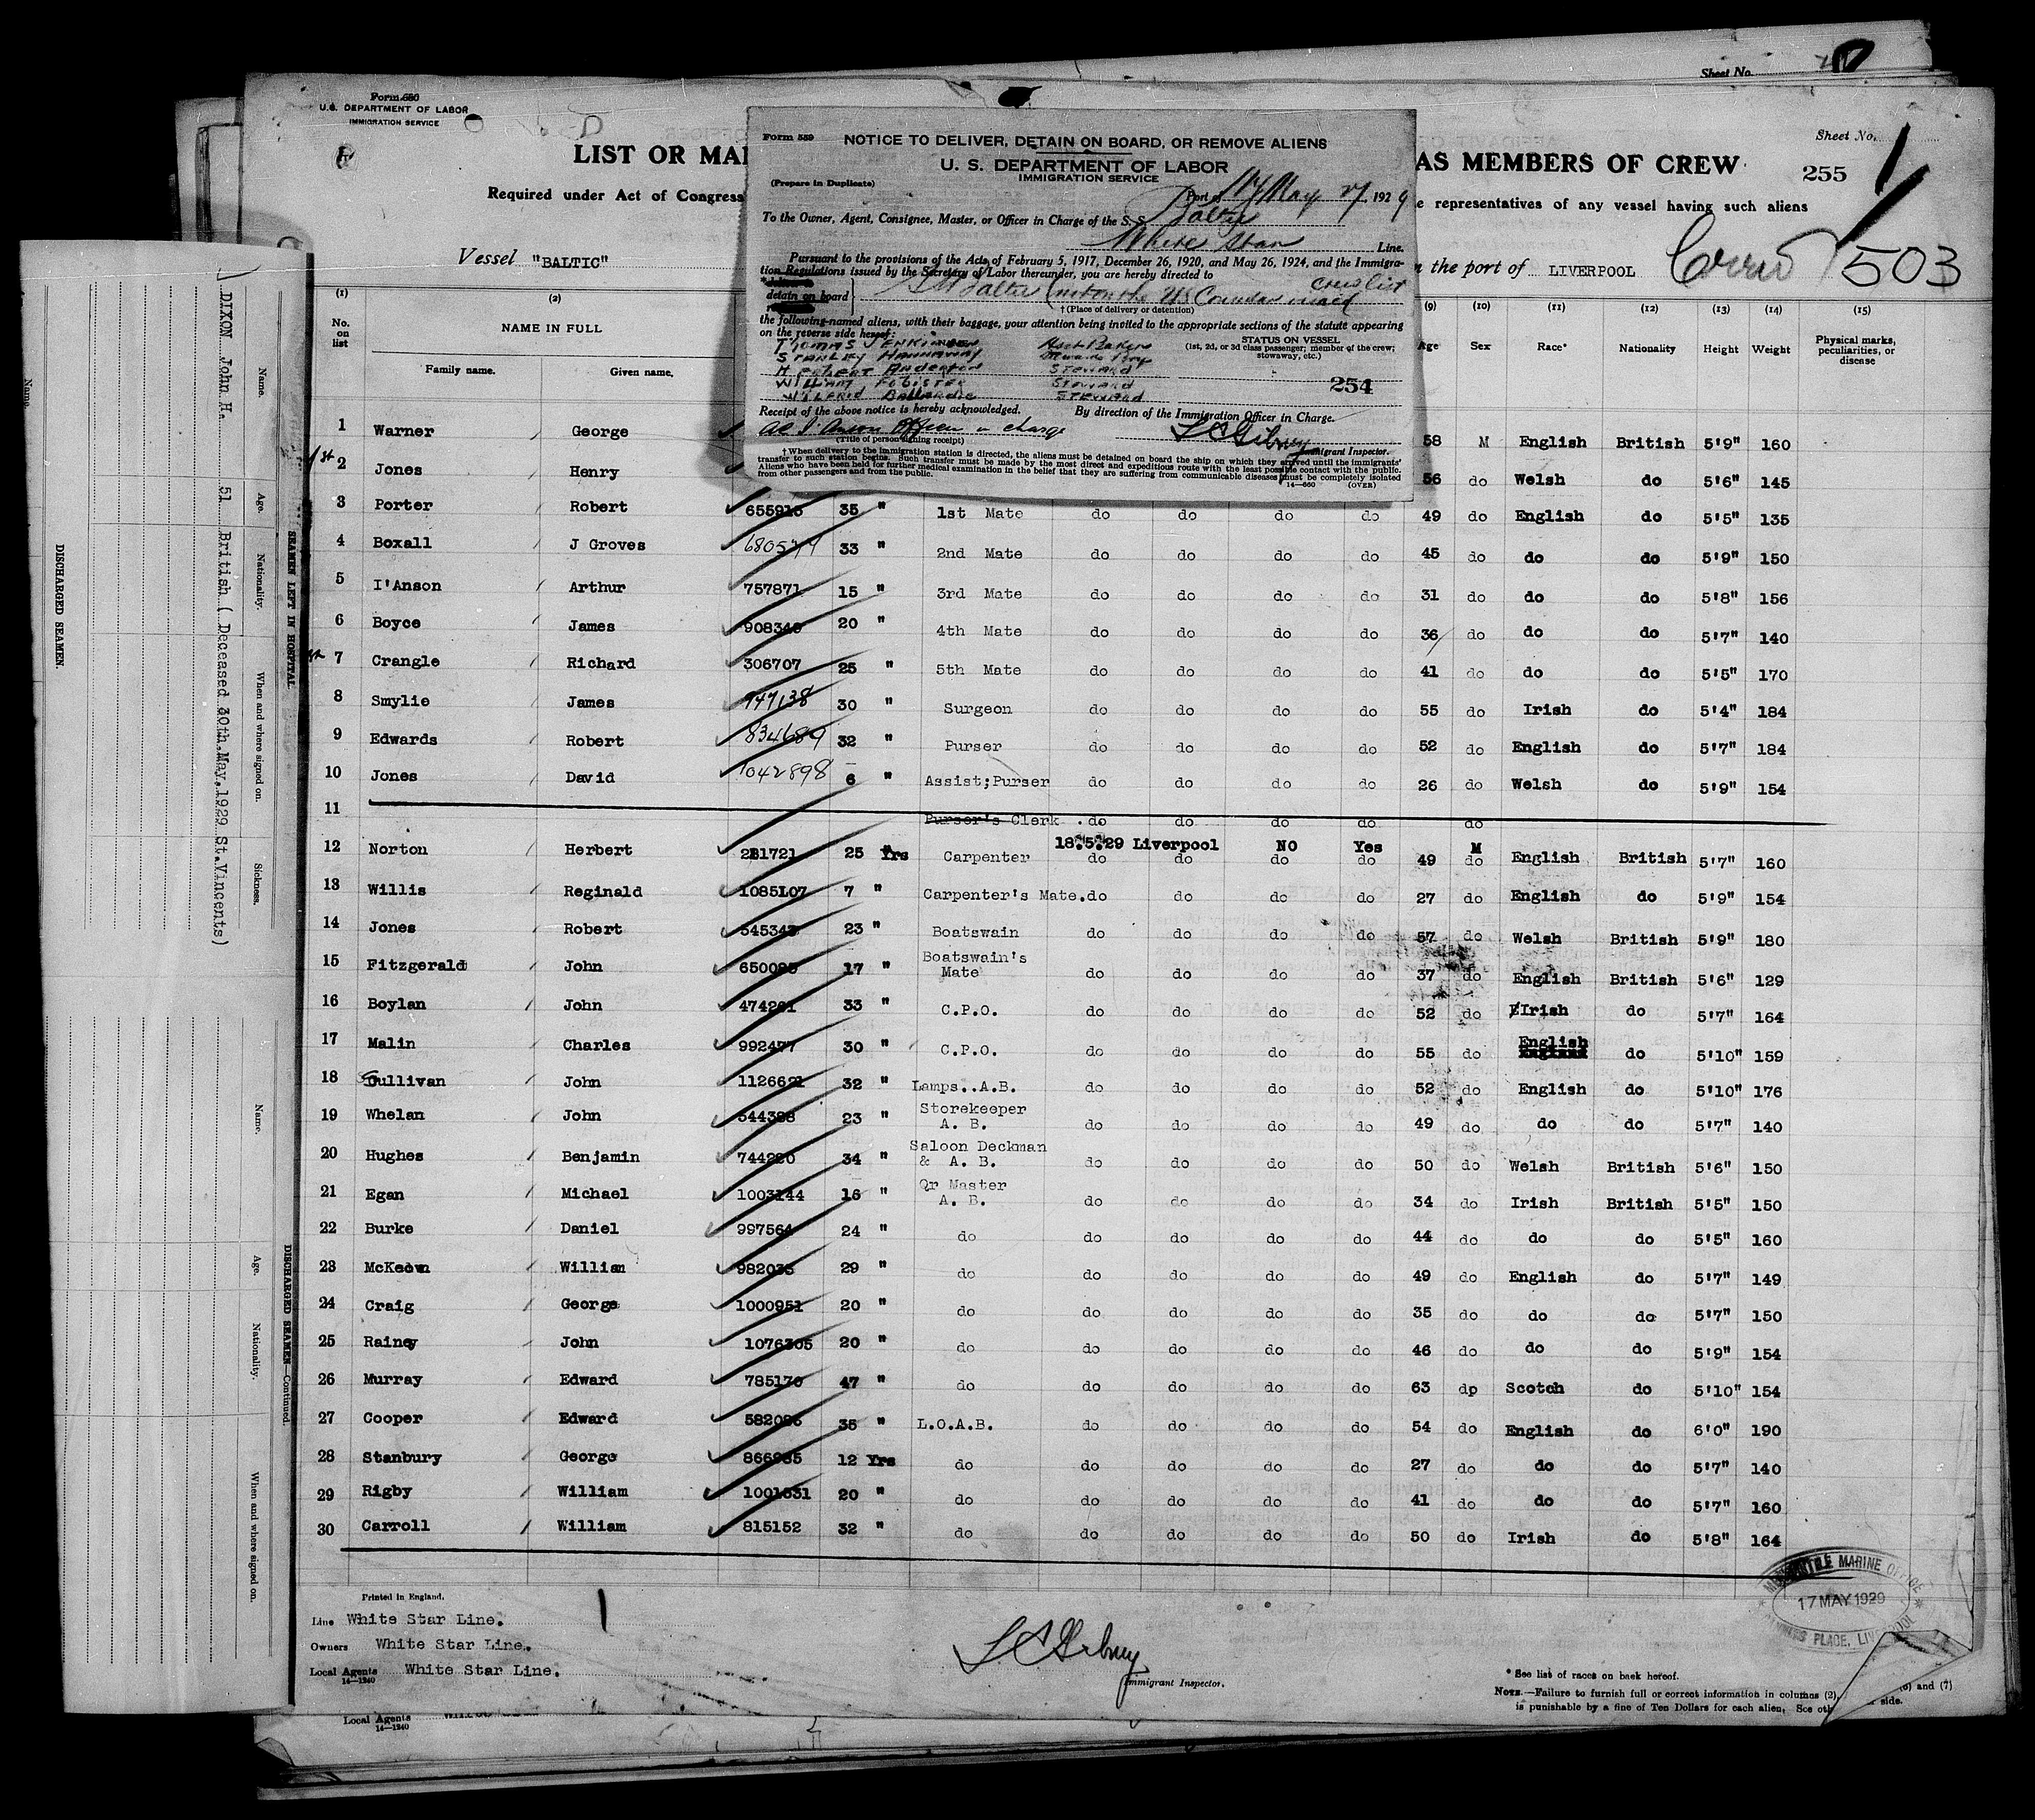 Sheet No.
Form 680
U.S. DEPARTMENT OF LABOR
IMMIGRATION SERVICE
Sheet No. 1
LIST OR MA
AS MEMBERS OF CREW
255
Required under Act of Congress
e representatives of any vessel having such aliens
Vessel "BALTIC"
the port of LIVERPOOL
Crew 503
Form 559
NOTICE TO DELIVER, DETAIN ON BOARD, OR REMOVE ALIENS
U. S. DEPARTMENT OF LABOR
IMMIGRATION SERVICE
(Prepare in Duplicate)
Port of NY May 27, 1929
To the Owner, Agent, Consignee, Master, or Officer in Charge of the S. S. Baltic
White Star Line.
Pursuant to the provisions of the Acts of February 5, 1917, December 26, 1920, and May 26, 1924, and the Immigra-
tion Regulations issued by the Secretary of Labor thereunder, you are hereby directed to
crew list
detain on board
SS Baltic (not on the US Consular visaed
† (Place of delivery or detention)
the following-named aliens, with their baggage, your attention being invited to the appropriate sections of the statute appearing
on the reverse side hereof:
STATUS ON VESSEL
(1st, 2d, or 3d class passenger; member of the crew; stowaway, etc.)
THOMAS JENKINSON Asst Baker
STANLEY HANNAWAY Stewards Boy
HERBERT Anderton STEWARD
WILLIAM FOBISTER STEWARD
WILFRID STEWARD
254
Receipt of the above notice is hereby acknowledged. By direction of the Immigration Officer in Charge.
I'Anson Officer in charge
(Title of person signing receipt)
Immigrant Inspector.
† When delivery to the immigration station is directed, the aliens must be detained on board the ship on which they arrived until the immigrants'
transfer to such station begins. Such transfer must be made by the most direct and expeditious route with the least possible contact with the public.
Aliens who have been held for further medical examination in the belief that they are suffering from communicable diseases must be completely isolated
from other passengers and from the public.
14—560 (OVER)
(1) (2) (9) (10) (11) (12) (13) (14) (15)
No. on list NAME IN FULL Age Sex Race* Nationality Height Weight Physical marks, peculiarities, or disease
Family name. Given name.
1 Warner George 58 M English British 5'9" 160
2 Jones Henry 56 do Welsh do 5'6" 145
3 Porter Robert 655915 35 " 1st Mate do do do do 49 do English do 5'5" 135
4 Boxall J Groves 680574 33 " 2nd Mate do do do do 45 do do do 5'9" 150
5 I'Anson Arthur 757871 15 " 3rd Mate do do do do 31 do do do 5'8" 156
6 Boyce James 908340 20 " 4th Mate do do do do 36 do do do 5'7" 140
7 Crangle Richard 306707 25 " 5th Mate do do do do 41 do do do 5'5" 170
8 Smylie James 947138 30 " Surgeon do do do do 55 do Irish do 5'4" 184
9 Edwards Robert 834689 32 " Purser do do do do 52 do English do 5'7" 184
10 Jones David 1042898 6 " Assist;Purser do do do do 26 do Welsh do 5'9" 154
11 Purser's Clerk . do do do do do
18:5:29 Liverpool NO Yes M
12 Norton Herbert 281721 25 Yrs Carpenter do do do do 49 do English British 5'7" 160
13 Willis Reginald 1085107 7 " Carpenter's Mate.do do do do 27 do English do 5'9" 154
14 Jones Robert 545343 23 " Boatswain do do do do 57 do Welsh British 5'9" 180
15 Fitzgerald John 650085 17 " Boatswain's Mate do do do do 37 do English British 5'6" 129
16 Boylan John 474261 33 " C.P.O. do do do do 52 do Irish do 5'7" 164
17 Malin Charles 992477 30 " C.P.O. do do do do 55 do English do 5'10" 159
18 Sullivan John 1126621 32 " Lamps..A.B. do do do do 52 do English do 5'10" 176
19 Whelan John 544388 23 " Storekeeper A. B. do do do do 49 do do do 5'7" 140
20 Hughes Benjamin 744220 34 " Saloon Deckman & A. B. do do do do 50 do Welsh British 5'6" 150
21 Egan Michael 1003144 16 " Qr Master A. B. do do do do 34 do Irish British 5'5" 150
22 Burke Daniel 997564 24 " do do do do do 44 do do do 5'5" 160
23 McKeown William 982035 29 " do do do do do 49 do English do 5'7" 149
24 Craig George 1000951 20 " do do do do do 35 do do do 5'7" 150
25 Rainey John 1076305 20 " do do do do do 46 do do do 5'9" 154
26 Murray Edward 785170 47 " do do do do do 63 dp Scotch do 5'10" 154
27 Cooper Edward 582086 35 " L.O.A.B. do do do do 54 do English do 6'0" 190
28 Stanbury George 866985 12 Yrs do do do do do 27 do do do 5'7" 140
29 Rigby William 1001331 20 " do do do do do 41 do do do 5'7" 160
30 Carroll William 815152 32 " do do do do do 50 do Irish do 5'8" 164
Printed in England.
Line White Star Line.
Owners White Star Line.
Local Agents White Star Line.
14—1240
Immigrant Inspector.
MERCANTILE MARINE OFFICE
17 MAY 1929
PLACE, LIVERPOOL
* See list of races on back hereof.
NOTE.—Failure to furnish full or correct information in columns (2), (6) and (7)
is punishable by a fine of Ten Dollars for each alien. See oth side.
Local Agents
14—1240
Name.
DISCHARGED SEAMEN.
DIXON John H. 51 British ( Deceased 30th.May.1929 St.Vincents)
Name. Age. Nationality. When and where signed on. Sickness.
SEAMEN LEFT IN HOSPITAL
Name. Age. Nationality. When and where signed on.
DISCHARGED SEAMEN—Continued.